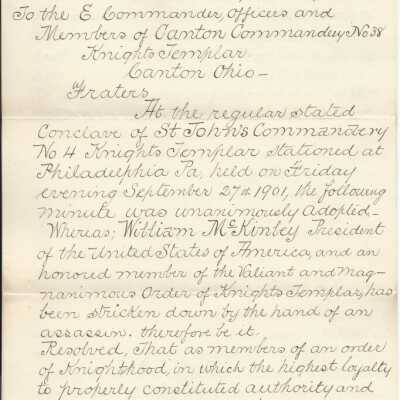 To the E. Commander, Officers, and
Members of Canton Commandery No 38
Knights Templar.
Canton Ohio –
Fraters,
At the regular stated
Conclave of St John's Commandery
No. 4 Knights Templar stationed at
Philadelphia Pa, held on Friday
evening September 27th 1901, the following
minute was unanimously adopted –
Whereas; William McKinley President
of the United States of America, and an
honored member of the Valiant and mag-
nanimous Order of Knights Templar, has
been stricken down by the hand of an
assassin. therefore be it.
Resolved, That as members of an order
of Knighthood, in which the highest loyalty
to properly constituted authority and